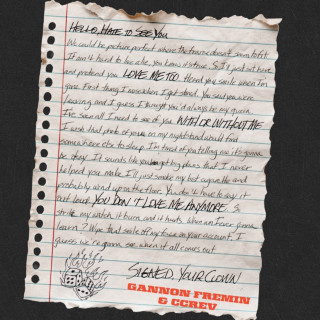 HELLO, HATE TO SEE YOU
We could be picture perfect where the frame doesn't seem to fit
It ain't hard to berate, you know it's true. So I'll just sit here
and pretend you LOVE ME TOO. Heard you smile when I'm
gone. First thing I noose when I get stoned. You said you were
leaving and I guess I thought you'd always be my queen
I've saw all I need to see of you WITH OR WITHOUT ME
I wish that photo of you on my nightstand would find
somewhere else to sleep. I'm tired of you telling me it's gonna
be okay. It sounds like you got big plans that I never
helped you make. I'll just smoke my last cigarette and
probably wind up on the floor. You don't have to say it
out loud YOU DON'T LOVE ME ANYMORE. I
strike my match, it burns, and it hurts. When am I ever gonna
learn? Wipe that smile off my face on your account. I
guess we're gonna see when it all comes out
SIGNED, YOUR CLOWN
GANNON FREMIN
& CCREV